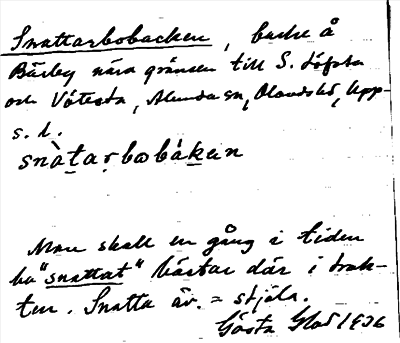 Snattarbobacken, backe å
Bärby nära gränsen till S. Löfsta
och Vätesta, Alunda sn, Olandshd, Upp-
s. l.
snàtarbobáken
Man skall en gång i tiden
ha "snattat" hästar där i trak-
ten. Snatta äv. = stjäla.
Gösta Glad 1936